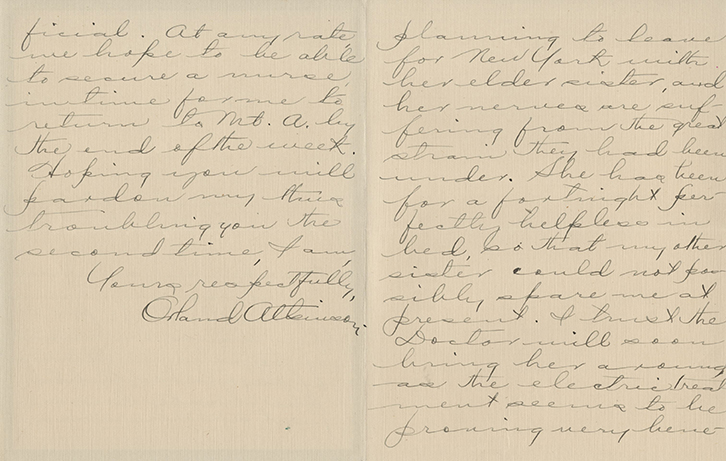 planning to leave
for New York with
her elder sister, and
her nerves are suf
fering from the great
strain they had been
under. She has been
for a fortnight per
fectly helpless in
bed, so that my other
sister could not pos
sibly spare me at
present. I trust the
Doctor will soon
bring her around,
as the electric treat
ment seems to be
proving very bene
ficial. At any rate
we hope to be able
to secure a nurse,
in time for me to
return to Mt. A. by
the end of the week.
Hoping you will
pardon my thus
troubling you the
second time, I am,
Yours respectfully,
Orland Atkinson.